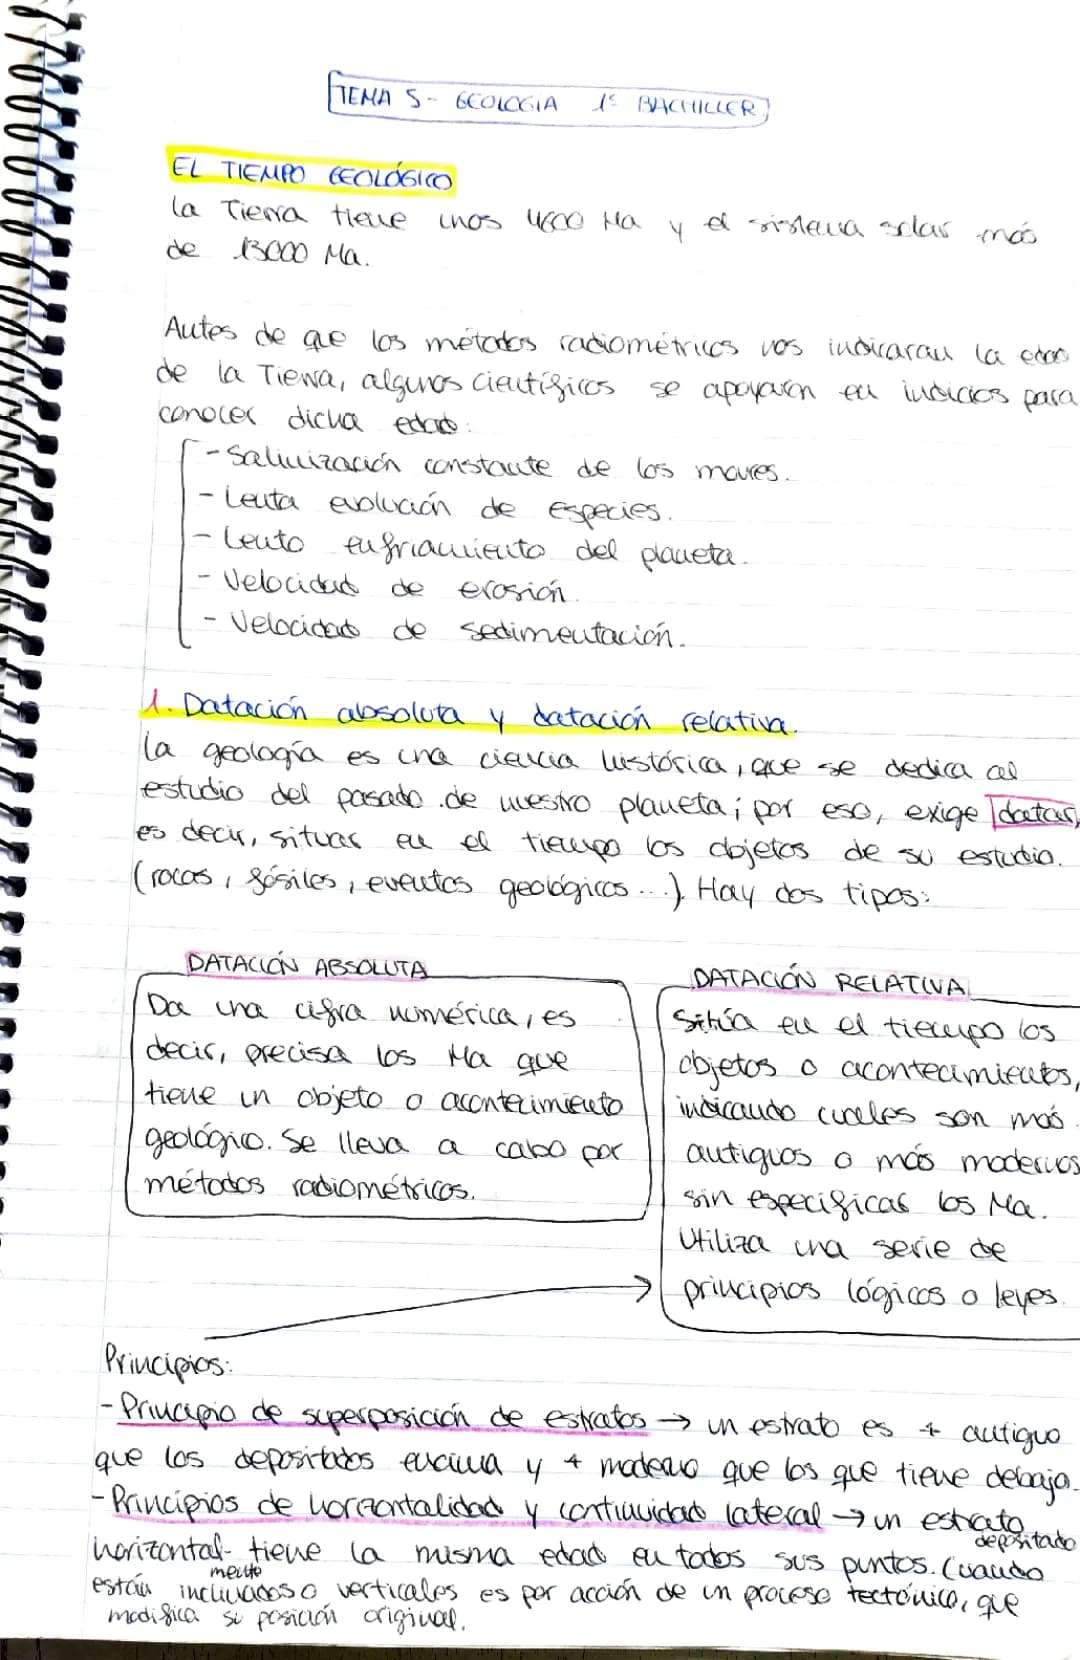 TEMA 5- GEOLOGIA 1º BACHILLER
EL TIEMPO GEOLÓGICO
La Tierra tiene unos 4600 Ma y el sistema solar más
de 13000 Ma.
Antes de que los métodos radiométricos nos indicaran la edad
de la Tierra, algunos científicos se apoyaron en indicios para
conocer dicha edad:
- Salinización constante de los mares.
- Lenta evolución de especies.
- Lento enfriamiento del planeta.
- Velocidad de erosión.
- Velocidad de sedimentación.
1. Datación absoluta y datación relativa.
La geología es una ciencia histórica, que se dedica al
estudio del pasado de nuestro planeta; por eso, exige datar,
es decir, situar en el tiempo los objetos de su estudio.
(rocas, fósiles, eventos geológicos...). Hay dos tipos:
DATACIÓN ABSOLUTA
Da una cifra numérica, es
decir, precisa los Ma que
tiene un objeto o acontecimiento
geológico. Se lleva a cabo por
métodos radiométricos.
DATACIÓN RELATIVA
Sitúa en el tiempo los
objetos o acontecimientos,
indicando cuales son más
antiguos o más modernos
sin especificar los Ma.
Utiliza una serie de
principios lógicos o leyes.
Principios:
- Principio de superposición de estratos → un estrato es + antiguo
que los depositados encima y + moderno que los que tiene debajo.
- Principios de horizontalidad y continuidad lateral → un estrato depositado
horizontalmente tiene la misma edad en todos sus puntos. Cuando
están inclinados o verticales es por acción de un proceso tectónico, que
modifica su posición original.